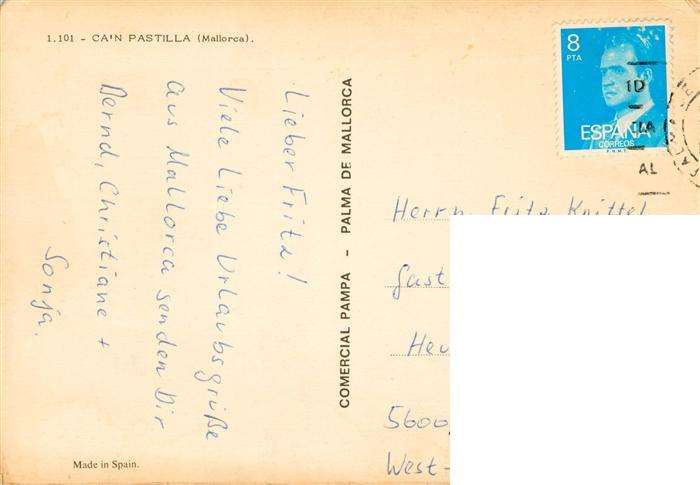 1.101 - CA'N PASTILLA (Mallorca).
Lieber Fritz!
Viele Liebe Urlaubsgrüße
aus Mallorca senden Dir
Bernd, Christiane +
Sonja.
Made in Spain.
COMERCIAL PAMPA - PALMA DE MALLORCA
8
PTA
ESPAÑA
CORREOS
F.N.M.T.
ID
AL
Herrn Fritz Knittel
Gast
Heu
5600,
West-